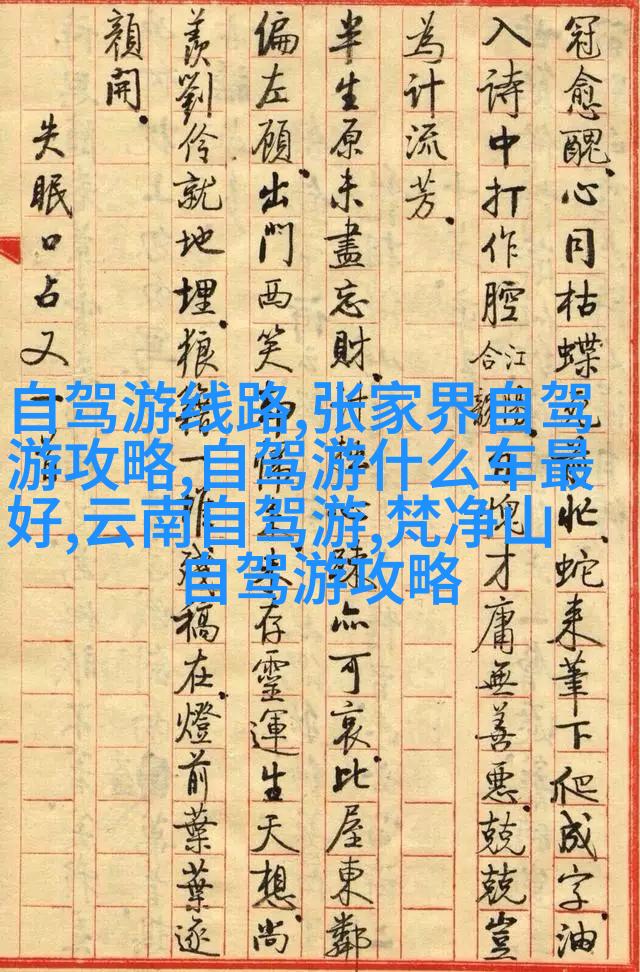 冠愈醜。心同枯蝶忙。蛇来筆下爬成字。油
入诗中打作腔江合才庸無善惡。兢兢豈
為计流芳。
半生原未盡忘財。疎亦可哀。比屋東鄰
偏左顧。出門西笑存靈運生天想。尚
羨劉伶就地埋。狼籍一堆残稿在。燈前葉葉逐
顏開。
失眠口占又一首
自驾游线路,张家界自驾
游攻略,自驾游什么车最
好,云南自驾游,梵净山
自驾游攻略